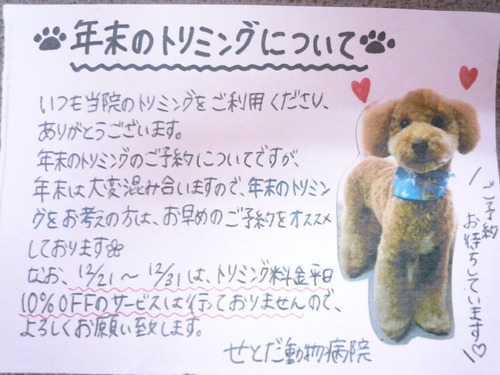 年末のトリミングについて
いつも当院のトリミングをご利用くださり、
ありがとうございます。
年末のトリミングのご予約についてですが、
年末は大変混み合いますので、年末のトリミン
グをお考えの方は、お早めのご予約をオススメ
しております
なお、12/21～12/31は、トリミング料金平日
10%OFFのサービスは行っておりませんので、
よろしくお願い致します。
せとだ動物病院
ご予約
お待ちしています♡